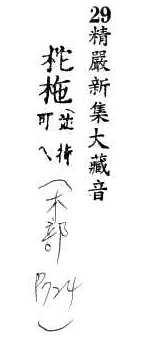 29精嚴新集大藏音
柁柂並徒可乀(木部P724)